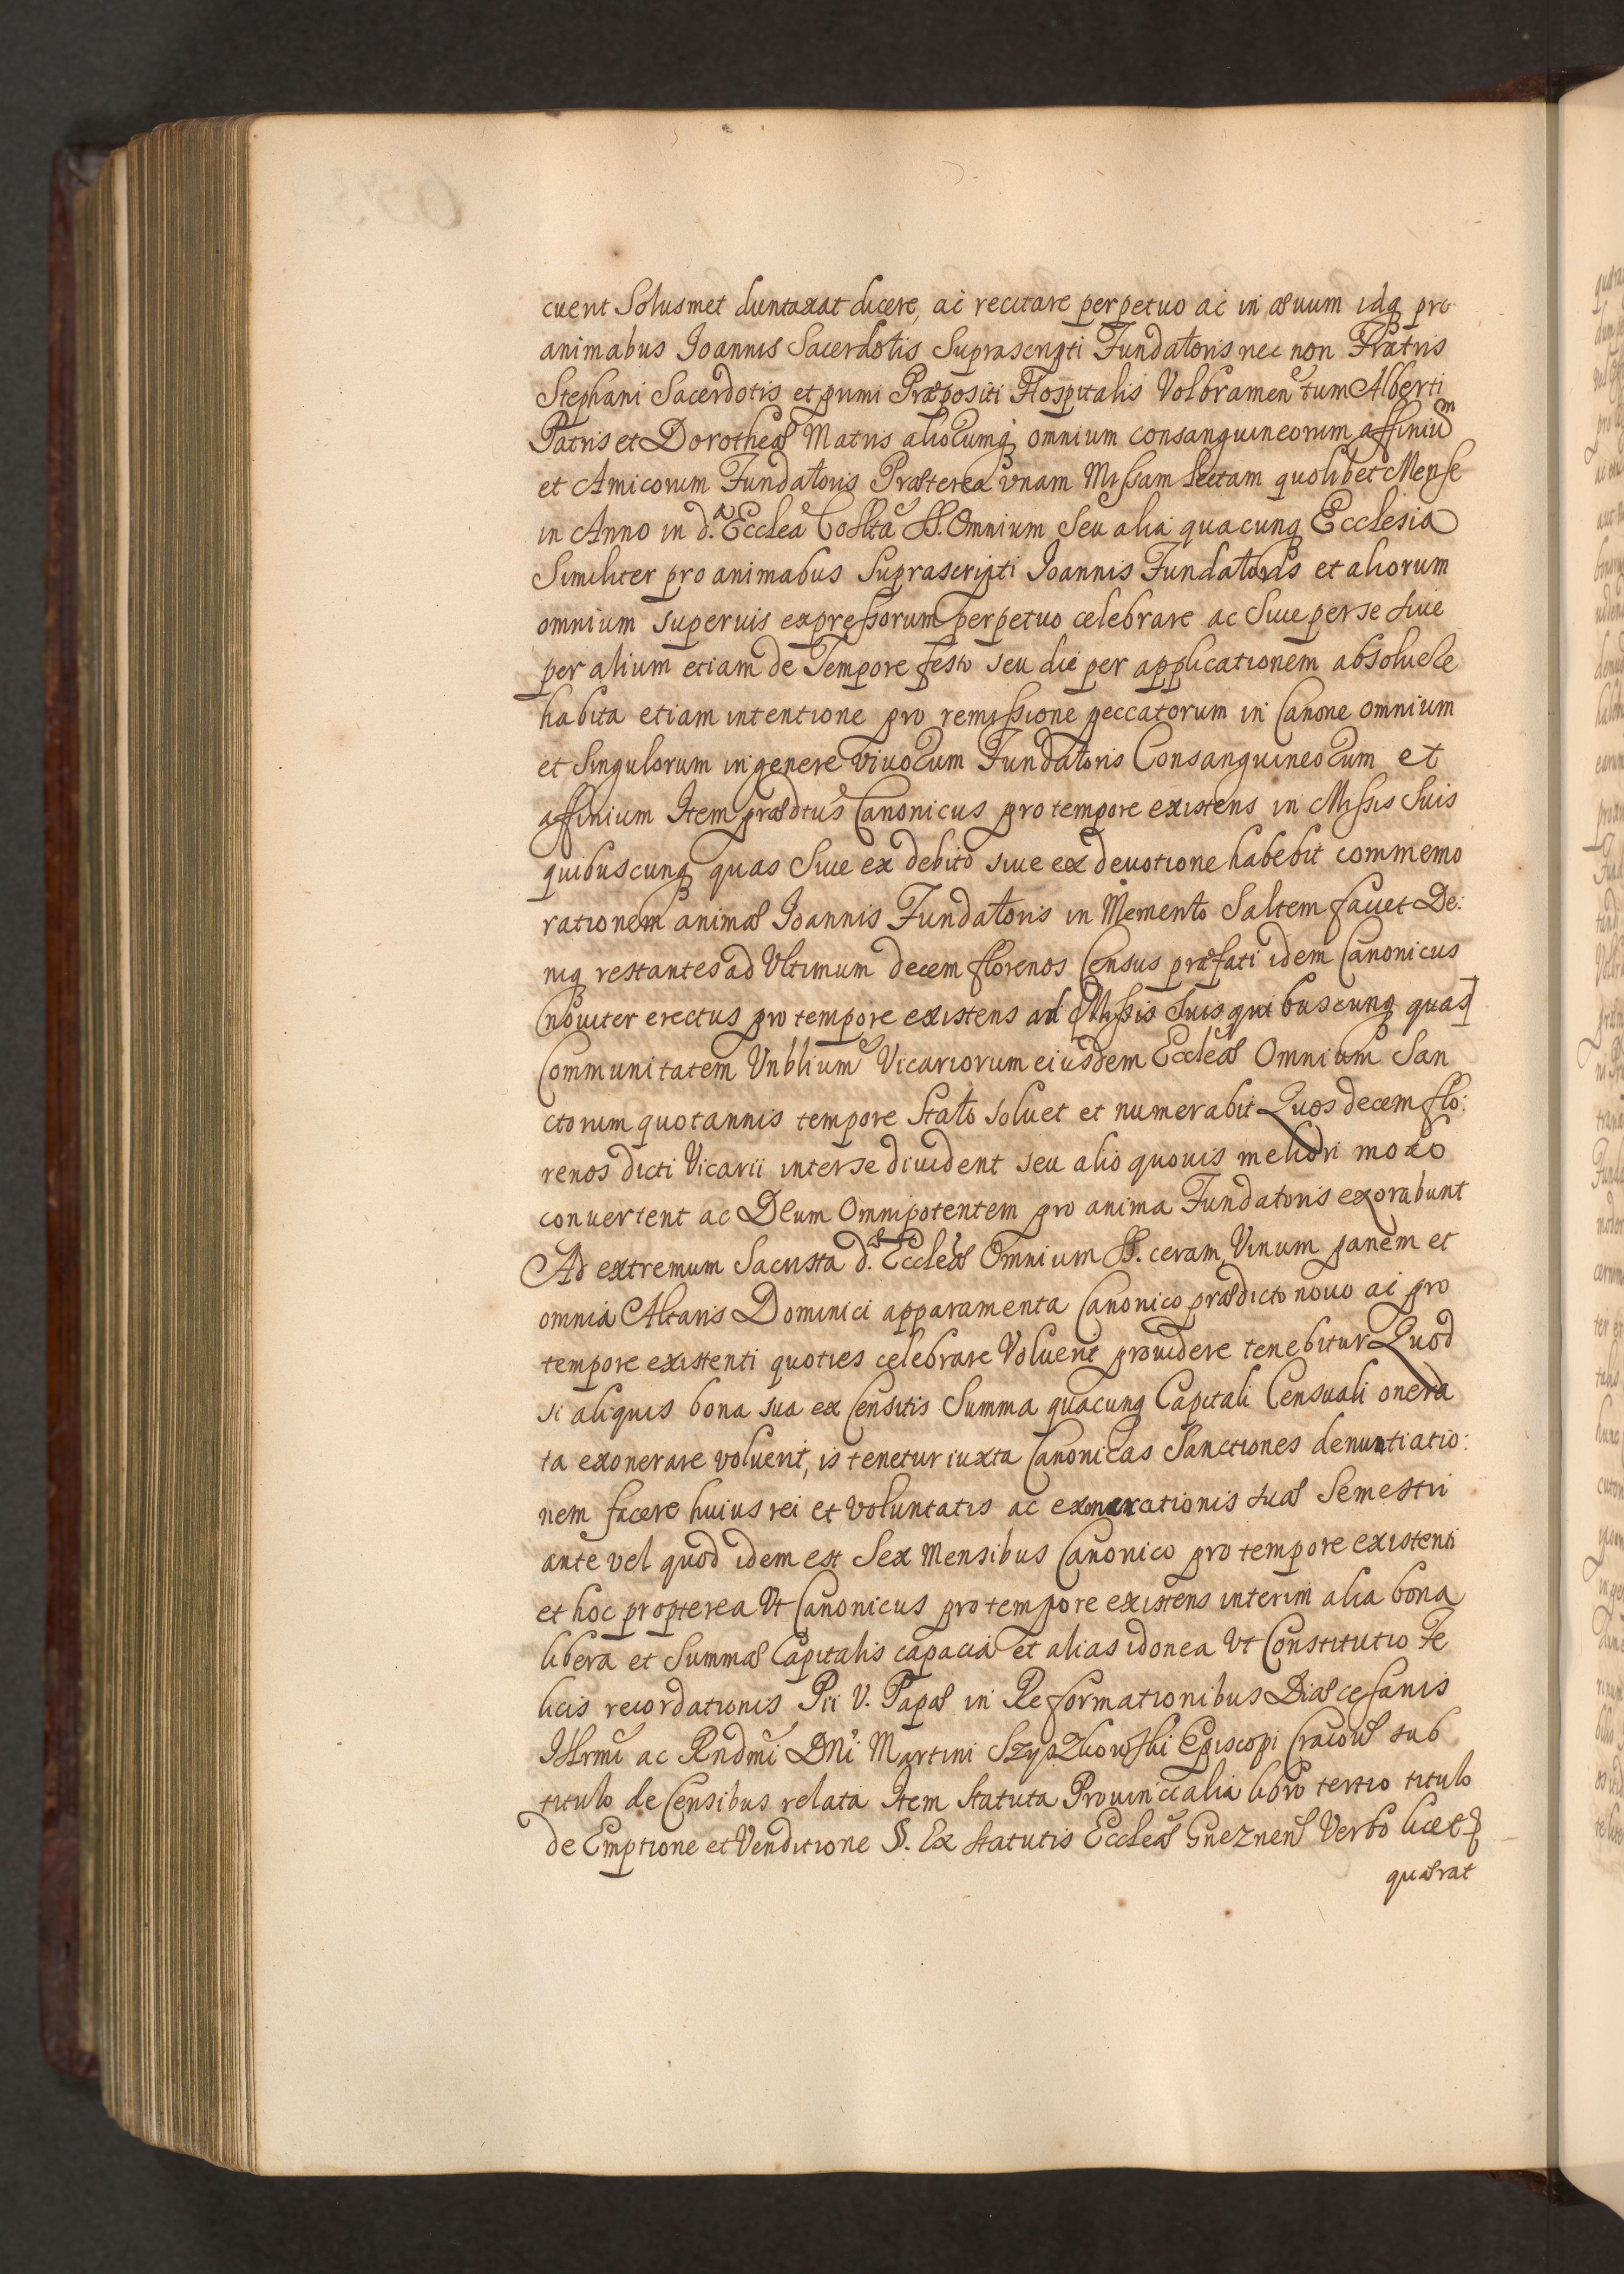 cuent Solusmet duntaxat dicere, ac recitare perpetuo ac in æuum idq pro
animabus Joannis Sacerdotis Suprascripti Fundatoris nec non Fratris
Stephani Sacerdotis et primi Præpositi Hospitalis Volbramen tum Alberti
Patris et Dorotheæ Matris aliorumq omnium consanguineorum affiniũm
et Amicorum Fundatoris Præterea vnam Missam Lectam quolibet Mense
in Anno in d.ª Ecclea Collta SS. Omnium Seu alia quacunq Ecclesia
Similiter pro animabus Suprascripti Joannis Fundatoris et aliorum
omnium superius expressorum perpetuo celebrare ac Siue per se siue
per alium etiam de Tempore festo seu die per applicationem absolucle
habita etiam intentione pro remissione peccatorum in Canone omnium
et Singulorum in genere viuorum Fundatoris Consanguineorum et
affinium Item prædtus Canonicus pro tempore existens in Missis Suis
quibuscunq quas Siue ex debito siue ex deuotione habebit commemo
rationem animæ Joannis Fundatoris in Memento Saltem faciet De:
niq restantes ad Vltimum decem florenos Census præfati idem Canonicus
nouiter erectus pro tempore existens ad [Missis Suis quibuscunq quas]
Communitatem Vnblium Vicariorum eiusdem Eccleæ Omnium San
ctorum quotannis tempore Stato soluet et numerabit Quos decem flo:
renos dicti Vicarii inter se diuident seu alio quouis meliori modo
conuertent ac Deum Omnipotentem pro anima Fundatoris exorabunt
Ad extremum Sacrista d.æ Eccleæ Omnium SS. ceram, Vinum panem et
omnia Altaris Dominici apparamenta Canonico prædicto nouo ac pro
tempore existenti quoties celebrare Voluerit prouidere tenebitur Quod
si aliquis bona sua ex Censitis Summa quacunq Capitali Censuali onera
ta exonerare voluerit, is tenetur iuxta Canonicas Sanctiones denuntiatio:
nem facere huius rei et voluntatis ac exonerationis suæ Semestri
ante vel quod idem est Sex Mensibus Canonico pro tempore existenti
et hoc propterea Vt Canonicus pro tempore existens interim alia bona
libera et Summæ Capitalis capacia et alias idonea Vt Constitutio Fe
licis recordationis Pii V. Papæ in Reformationibus Diæcesanis
Illrmi ac Rndmi DNi Martini Szyszkowski Episcopi Cracouẽ sub
titulo de Censibus relata Item Statuta Prouincialia libro tertio titulo
de Emptione et Venditione §. Ex Statutis Eccleæ Gneznen Verbo licet
quærat